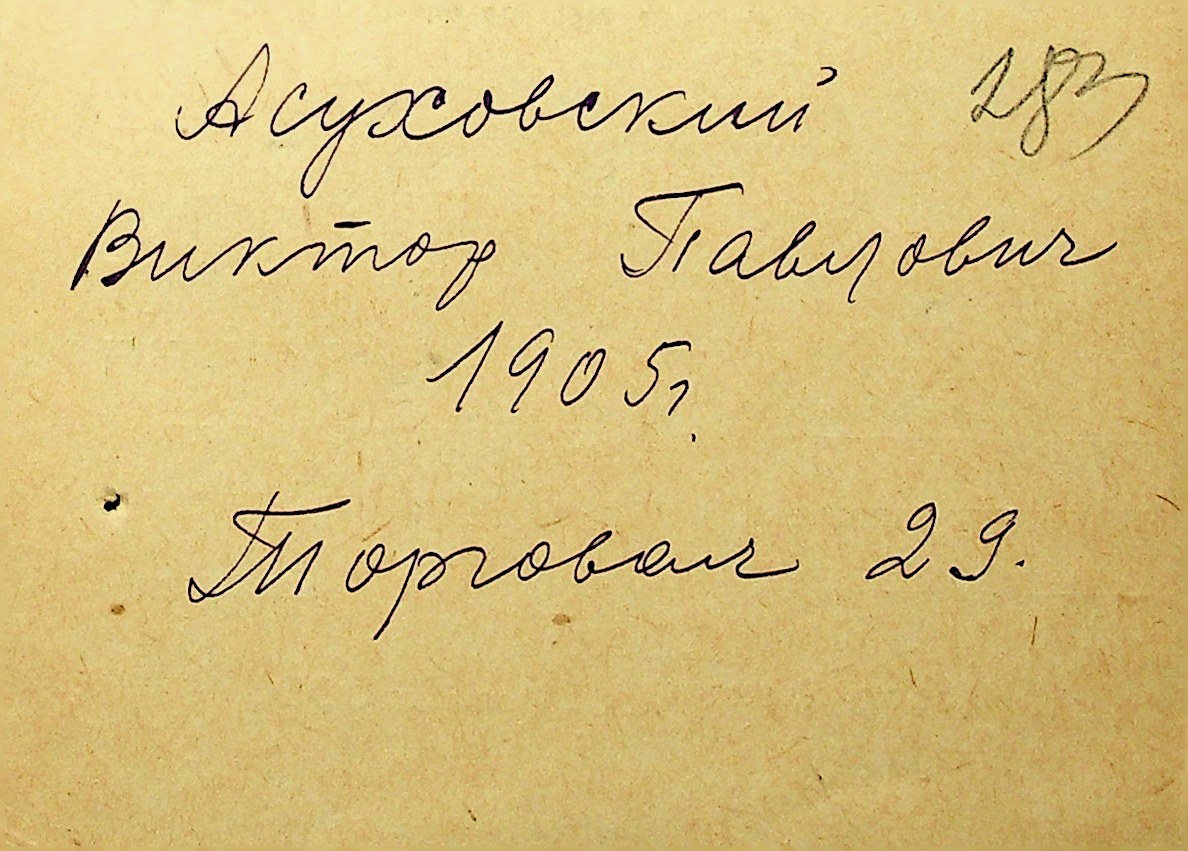 Асуховский 283
Виктор Павлович
1905г.
Торговая 29.